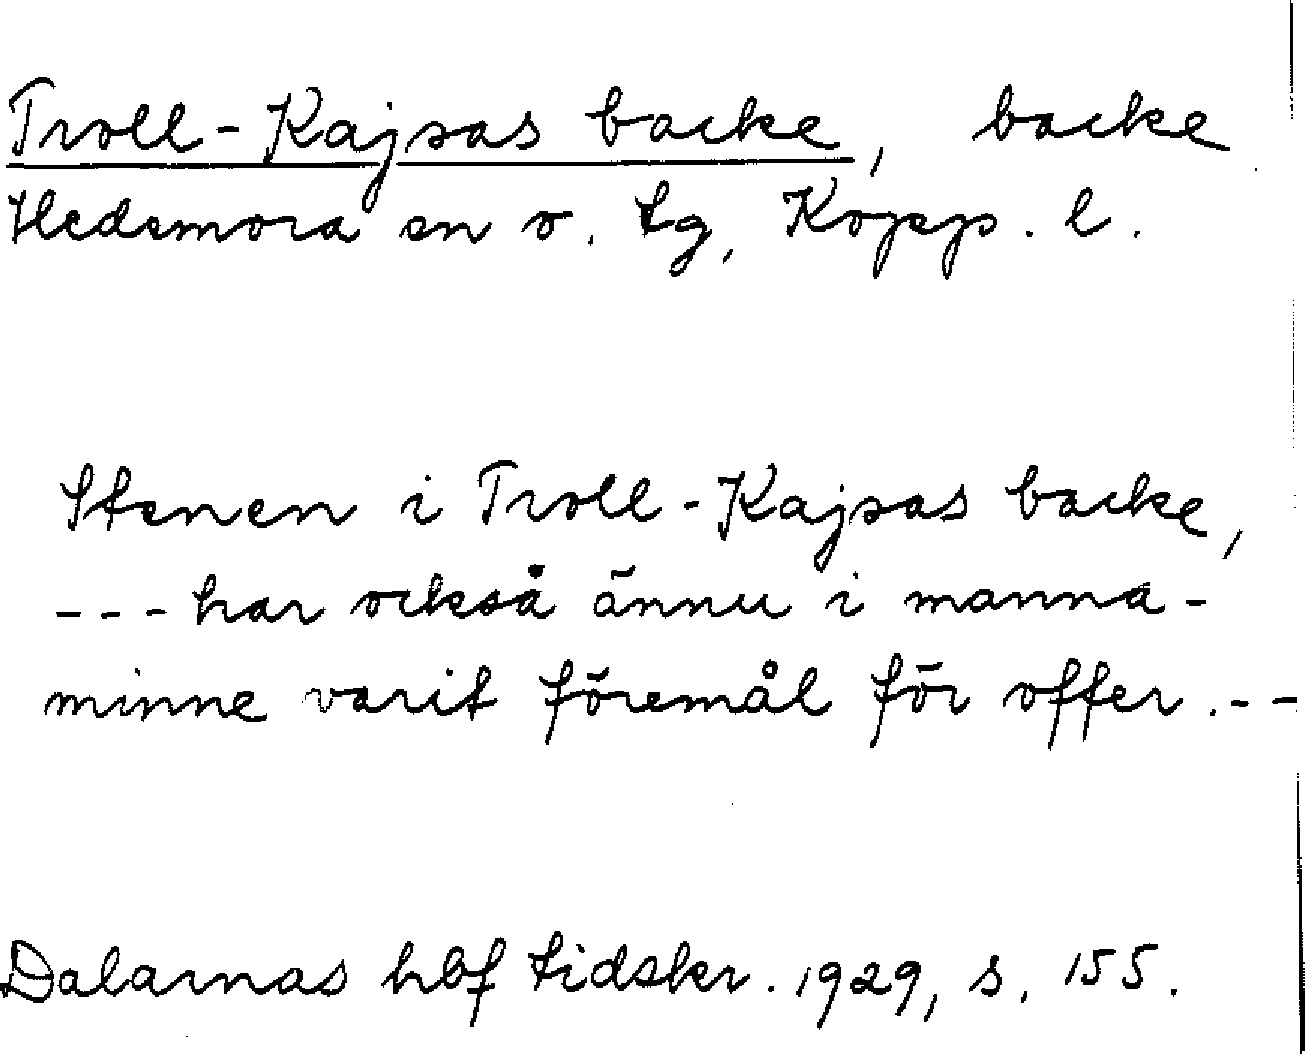 Troll-Kajsas backe, backe
Hedemora sn o. tg, Kopp. l.
Stenen i Troll-Kajsas backe,
--- har också ännu i manna-
minne varit föremål för offer. --
Dalarnas hbf tidskr. 1929, s. 155.